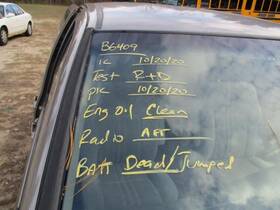 B6409
IC 10/20/20
Test R+D
PIC 10/20/20
Eng Oil Clean
Radio AFT
BATT Dead/Jumped